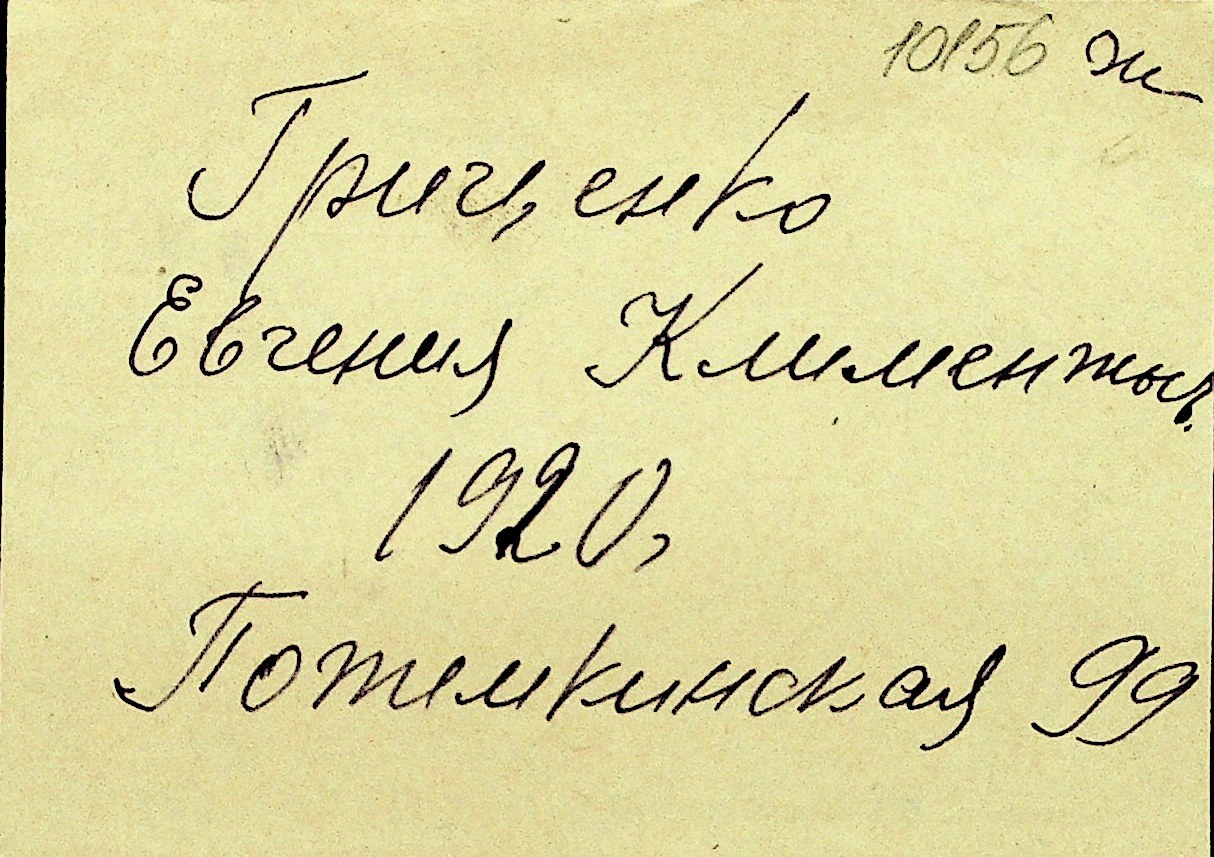 10156 ж
Грищенко
Евгения Климентьев.
1920,
Потемкинская 99